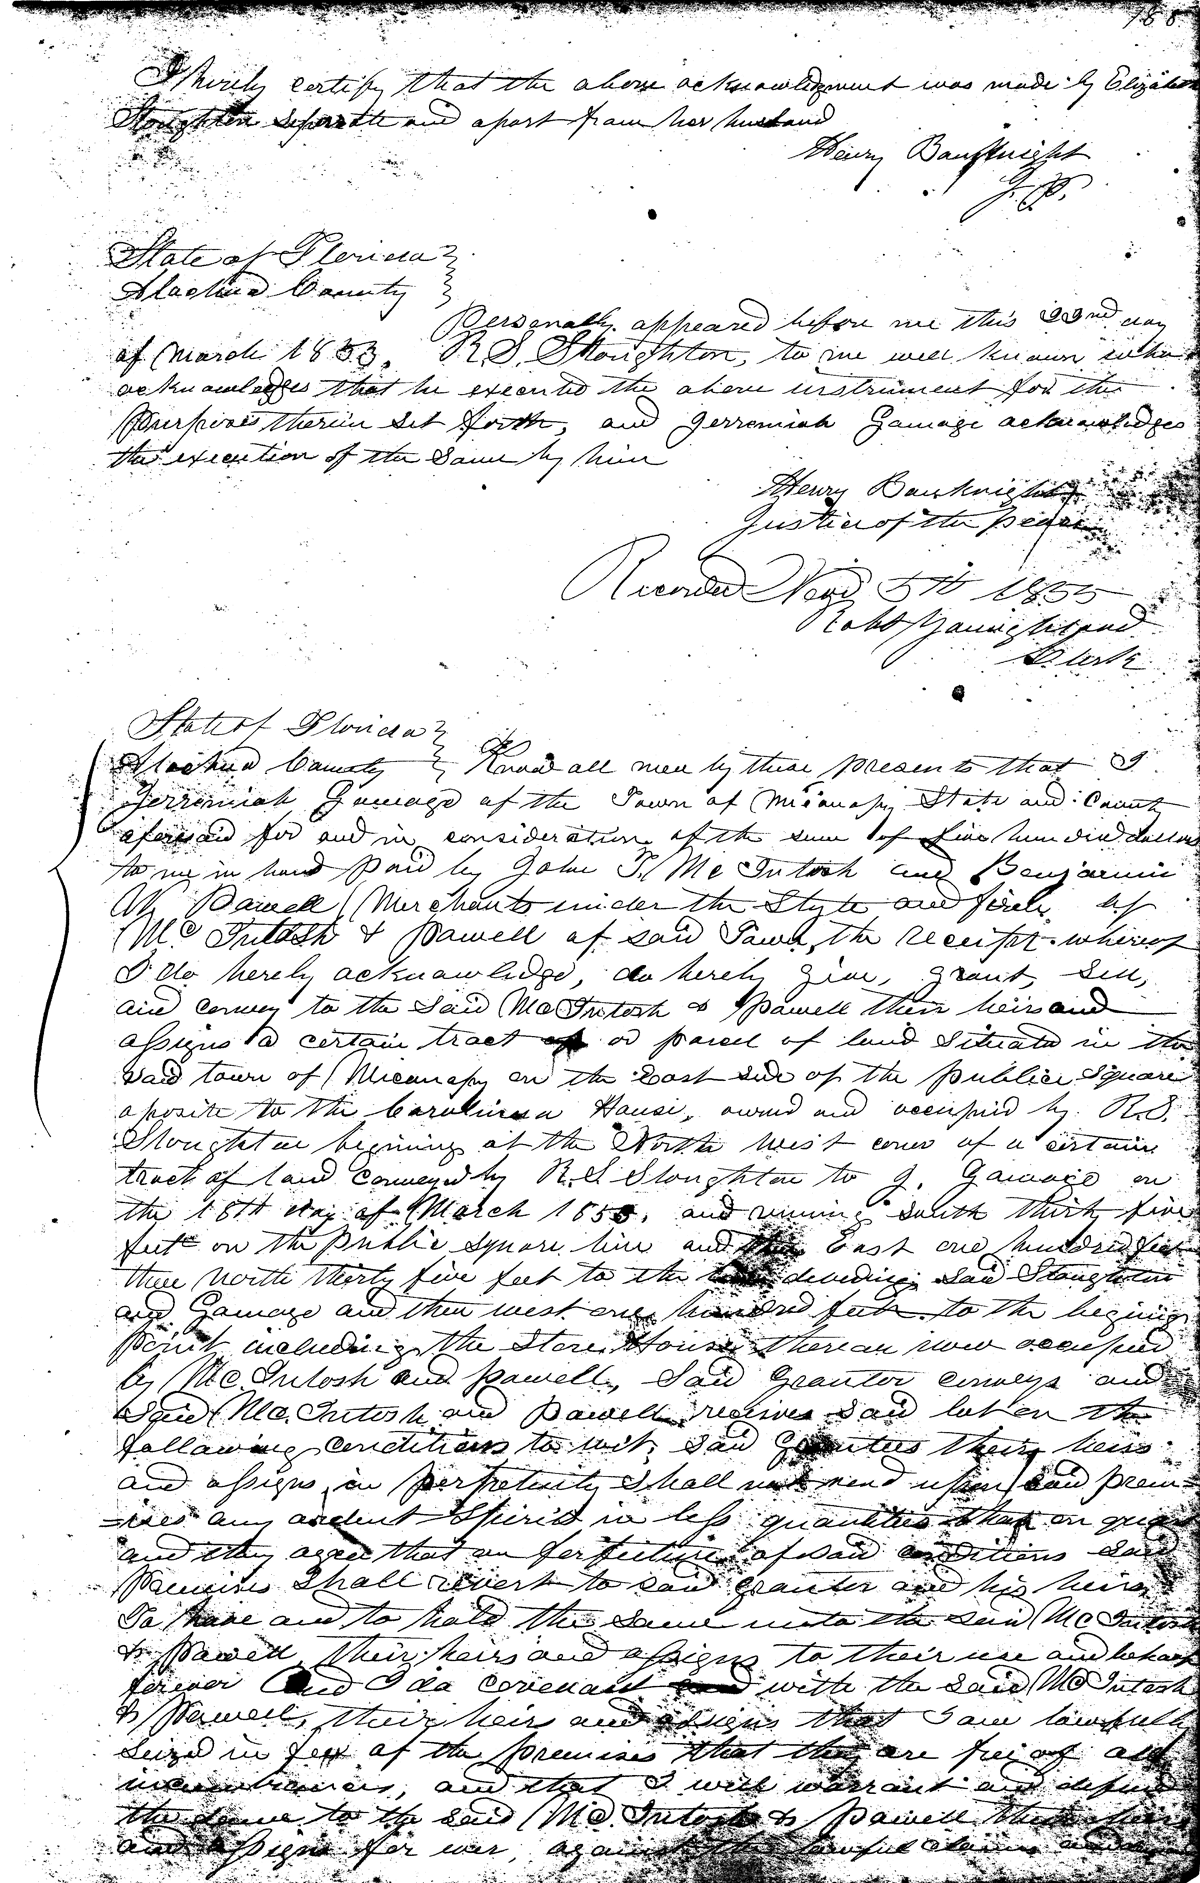 188
I hereby certify that the above acknowledgment was made by Elizabeth
Stoughton seperate and apart from her husband
Henry Bauknight
J. P.
State of Florida
Alachua County
Personally appeared before me this 22nd day
of March 1853. R. S. Stoughton, to me well known who
acknowledges that he executed the above instrument for the
Purposes therein set forth, and Jerremiah Gamage acknowledges
the execution of the same by him
Henry Bauknight
Justice of the peace
Recorded Nov 5th 1855
Robt Younghusband
Clerk
State of Florida
Alachua County Know all men by these presents that I
Jerremiah Gamage of the Town of Micanopy State and County
aforesaid for and in consideration of the sum of five hundred dollars
to me in hand paid by John T. McIntosh and Benjamin
W. Powell (Merchants under the Style and firm of
McIntosh & Powell of said Town, the receipt whereof
I do hereby acknowledge, do hereby give, grant, sell,
and convey to the said McIntosh & Powell their heirs and
assigns a certain tract or parcel of land situate in the
said town of Micanopy on the East side of the public square
oposite to the Carolina House, owned and occupied by R. S.
Stoughton begining at the North west corner of a certain
tract of land conveyed by R. S. Stoughton to J. Gamage on
the 18th day of March 1853. and runing south thirty five
feet on the public square line and then East one hundred feet
then North thirty five feet to the line devideing said Stoughton
and Gamage and then west one hundred feet to the begining
point including the Store House thereon now occupied
by McIntosh and Powell, said grantor conveys and
said McIntosh and Powell receives said lot on the
following conditions to wit, said Grantees their heirs
and assigns in perpetuity shall not vend upon said prem=
=ises any ardent Spirits in less quantities than on quart
and they agree that on forfeiture of said conditions said
Premises shall revert to said grantor and his heirs
To have and to hold the same unto the said McIntosh
& Powell, their heirs and assigns to their use and behoof
forever And I do covenant with the said McIntosh
& Powell, their heirs and assigns that I am lawfully
seized in fee of the premises that they are free of all
incumbrances, and that I will warrant and defend
the same to the said McIntosh & Powell their heirs
and assigns for ever, against the lawful claims and